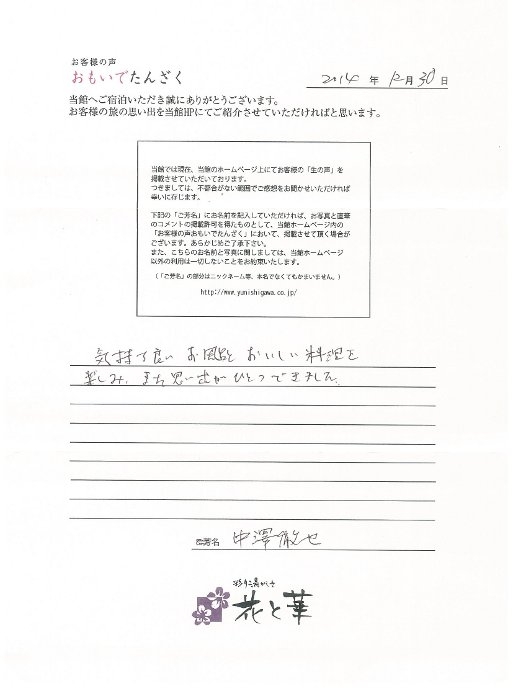 お客様の声
おもいでたんざく
2014 年 12月 30 日
当館へご宿泊いただき誠にありがとうございます。
お客様の旅の思い出を当館HPにてご紹介させていただければと思います。
当館では現在、当館のホームページ上にてお客様の「生の声」を
掲載させていただいております。
つきましては、不都合がない範囲でご感想をお聞かせいただければ
幸いに存じます。
下記の「ご芳名」にお名前を記入していただければ、お写真と直筆
のコメントの掲載許可を得たものとして、当館ホームページ内の
「お客様の声おもいでたんざく」において、掲載させて頂く場合が
ございます。あらかじめご了承下さい。
また、こちらのお名前と写真に関しましては、当館ホームページ
以外の利用は一切しないことをお約束いたします。
(「ご芳名」の部分はニックネーム等、本名でなくてもかまいません。)
http://www.yunishigawa.co.jp/
気持ち良い お風呂と おいしい 料理を
楽しみ、また 思い出が ひとつ できました。
ご芳名 中澤徹也
彩り湯かしき
花と華